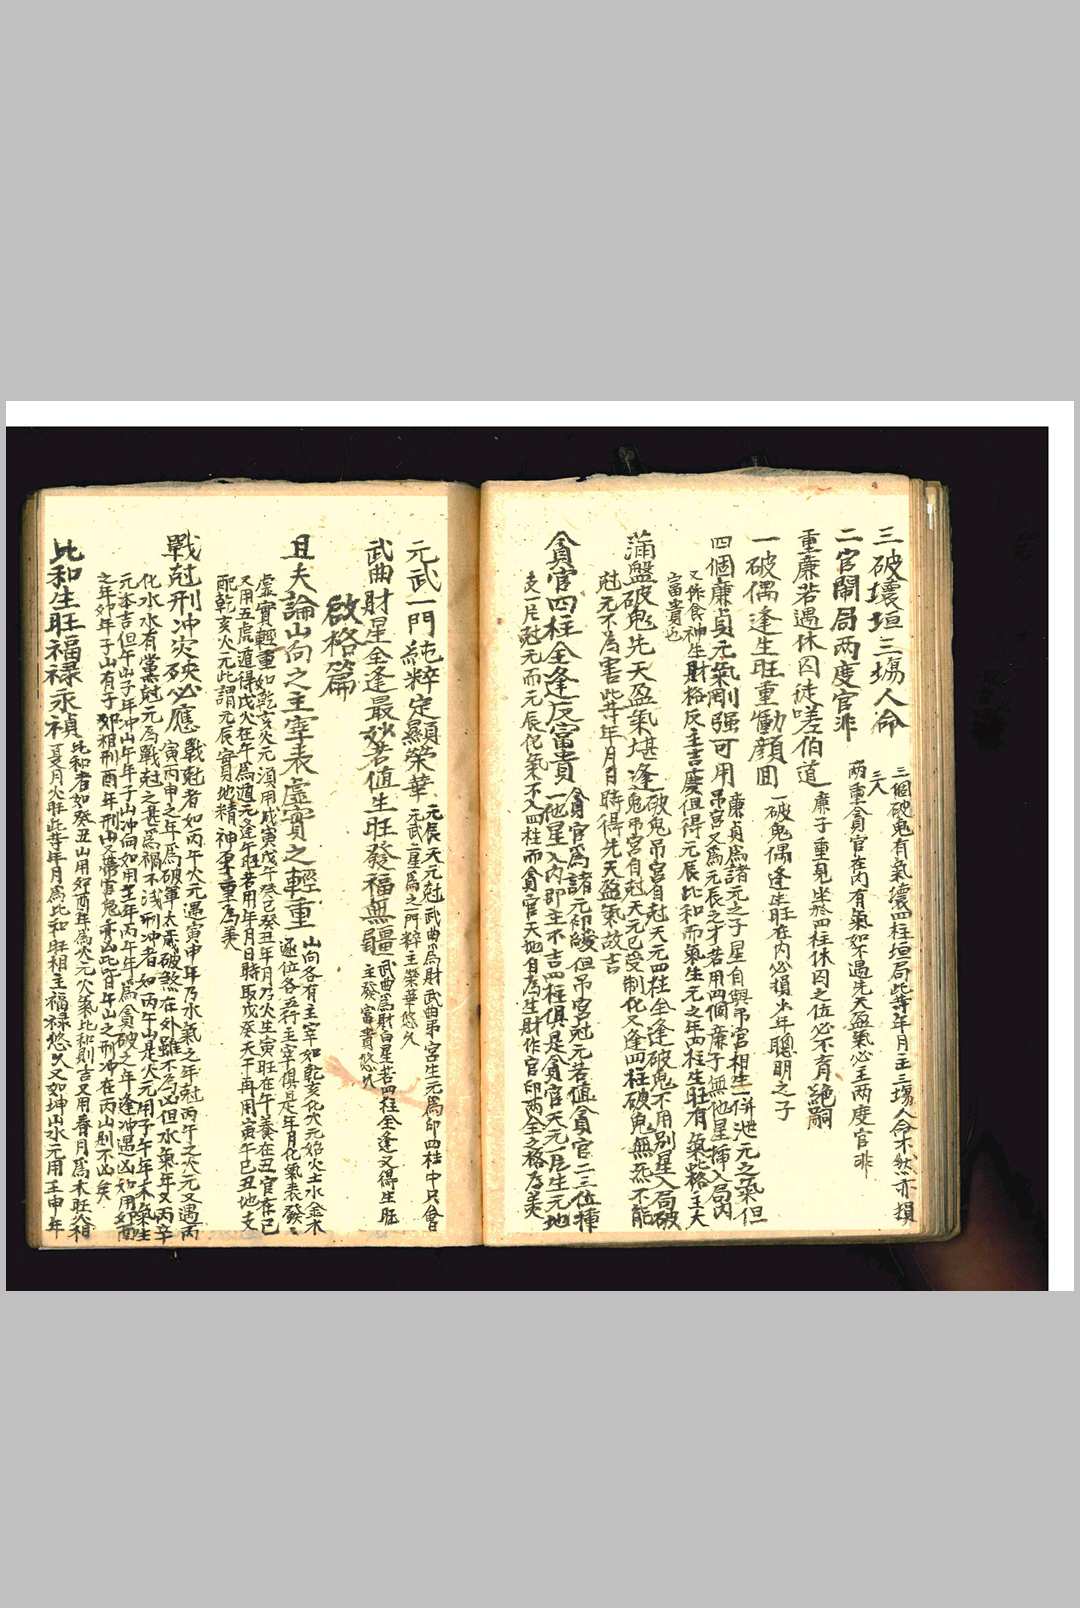 三破壞垣三塲人命
三個破鬼有氣壞四柱垣局此等年月主三塲人命不然亦損
三人
二官鬧局两度官非
两重貪官在內有氣如不過先天盈氣必主两度官非
重廉若遇休囚徒嗟伯道
廉子重見坐於四柱休囚之位必不育絕嗣
一破偶逢生旺重慟顏回
一破鬼偶逢生旺在內必損少年聰明之子
四個廉貞元氣剛强可用
廉貞爲諸元之子星自與吊宮相生一併泄元之氣但
吊宮又爲元辰之才若用四個廉子無他星揷入局內
又作食神生財格反主吉慶但得元辰比和而氣生元之年四柱生旺有氣此格主大
富貴也
滿盤破鬼先天盈氣堪逢
破鬼吊宮自尅天元四柱全逢破鬼不用別星入局破
鬼吊宮自尅天元已受制化又逢四柱破鬼無炁不能
尅元不為害此等年月日時得先天盈氣故吉
貪官四柱全逢反富貴
貪官爲諸元印綬但吊宮尅元若值貪官二三位揷
一他星入內即主不吉四柱俱是貪官天元一片生元地
支一片尅元而元辰化氣不入四柱而貪官天地自為生財作官印两全之格為美
元武一門純粹定顯榮華
元辰天元尅武曲為財武曲吊宮生元為印四柱中只會
元武二星爲之一門粹主榮華悠久
武曲財星全逢最妙若值生旺發福無疆
武曲爲財白星若四柱全逢又得生旺
主發富貴悠久
啟格篇
且夫論山向之主宰表虛實之輕重
山向各有主宰如乾亥化火元始火土水金木
逐位各五行主宰俱是年月化氣表發
虛實輕重如乾亥火元須用戊寅戊午癸巳癸丑年月乃火生寅旺在午養在丑官在巳
又用五虎遁得戊火在午為遁元逢午旺若用年月日時取戊癸天干再用寅午巳丑地支
配乾亥火元此謂元辰實地精神專重為美
戰尅刑冲灾殃必應
戰尅者如丙午火元遇寅申年乃水氣之年尅丙午之火元又遇丙
寅丙申之年爲破軍太歲破煞在外雖不為凶但水氣年又丙辛
化水水有黨尅元為戰尅之甚爲禍不浅刑冲者如丙午山是火元用子午年木氣生
元本吉但午山子年冲山午年子山冲向如用壬年丙午年爲貪破之年逢冲遇凶如用卯酉
之年卯年子山有子卯相刑酉年刑中又帶官鬼亦凶此百午山之刑冲在丙山則不凶矣
比和生旺福禄永禎
比和者如癸丑山用卯酉年爲火元火氣比和則吉又用春月爲木旺火相
夏月火旺此等年月爲比和旺相主福禄悠久又如坤山水元用壬申年